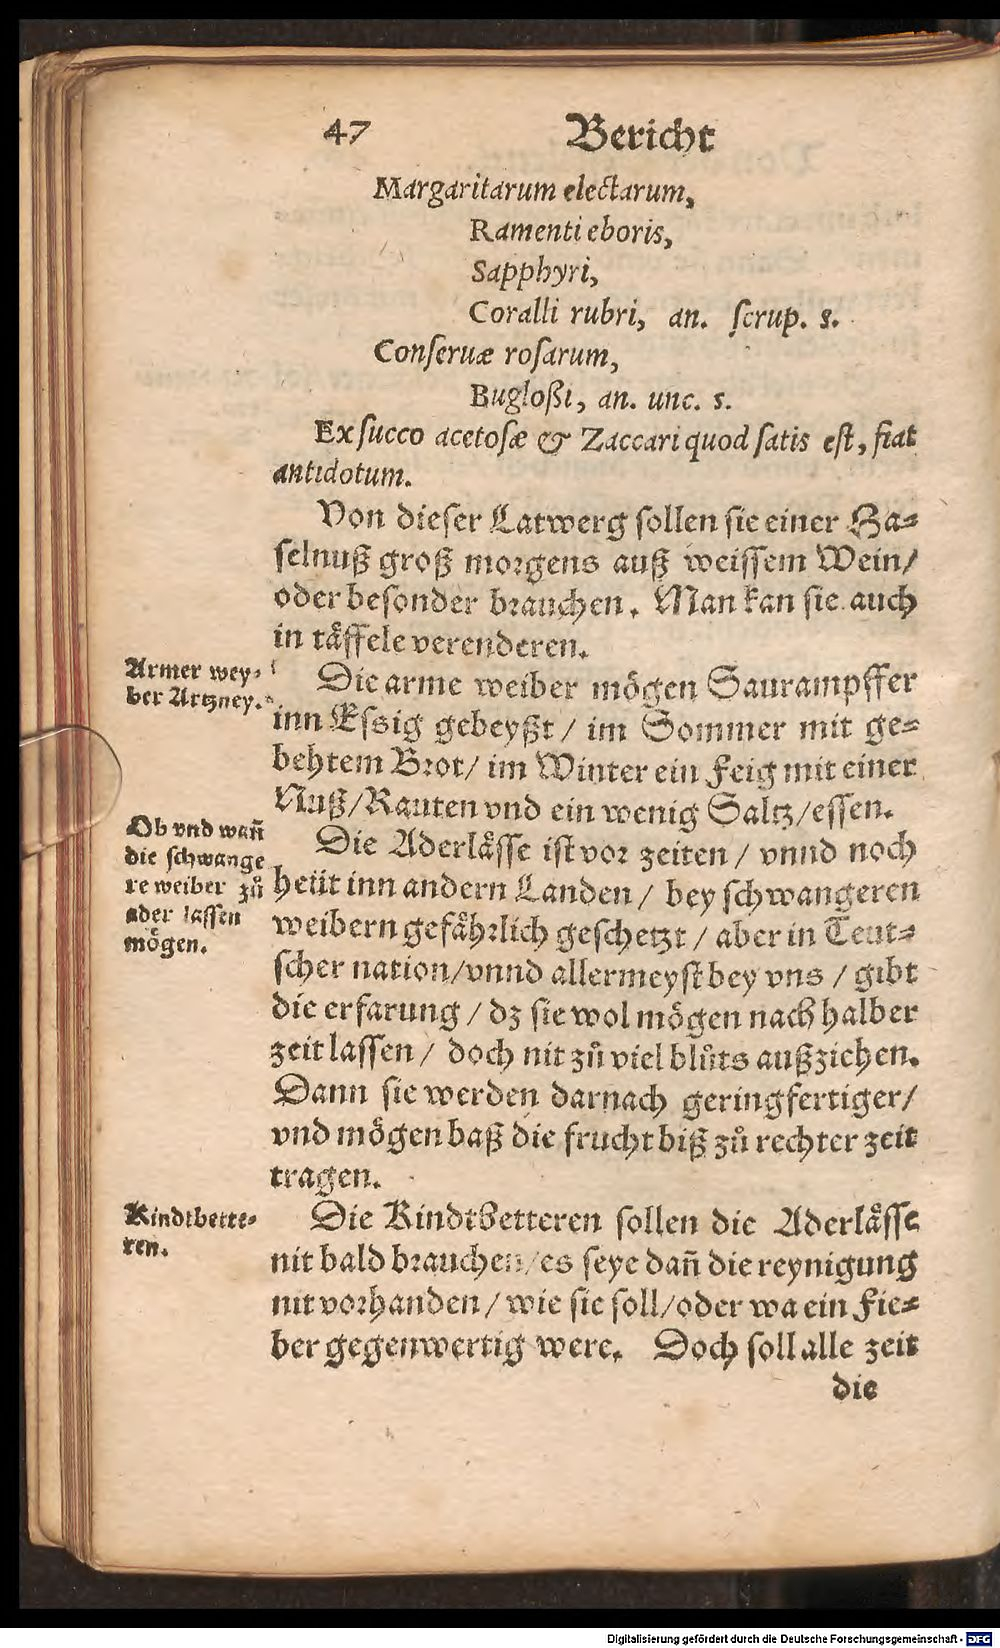 47 Bericht
Margaritarum electarum,
Ramenti eboris,
Sapphyri,
Coralli rubri, an. ſcrup. s.
Conſeruæ roſarum,
Bugloßi, an. unc. s.
Ex ſucco acetoſæ & Zaccari quod ſatis eſt, fiat
antidotum.
Von dieſer Latwerg ſollen ſie einer Ha⸗
ſelnuß groß morgens auß weiſſem Wein/
oder beſonder brauchen. Man kan ſie auch
in taͤffele verenderen.
Armer wey⸗
ber Artzney.
Die arme weiber moͤgen Saurampffer
inn Eſsig gebeyßt / im Sommer mit ge⸗
behtem Brot/ im Winter ein Feig mit einer
Nuß/Rauten vnd ein wenig Saltz/eſſen.
Ob vnd wañ
die ſchwange
re weiber zů
ader laſſen
moͤgen.
Die Aderlaͤſſe iſt vor zeiten / vnnd noch
heüt inn andern Landen / bey ſchwangeren
weibern gefaͤhrlich geſchetzt / aber in Teut⸗
ſcher nation/vnnd allermeyſt bey vns / gibt
die erfarung / dz ſie wol moͤgen nach halber
zeit laſſen / doch nit zů viel blůts außziehen.
Dann ſie werden darnach geringfertiger/
vnd moͤgen baß die frucht biß zů rechter zeit
tragen.
Kindtbette⸗
ren.
Die Kindtbetteren ſollen die Aderlaͤſſe
nit bald brauchen/es ſeye dañ die reynigung
nit vorhanden / wie ſie ſoll/oder wa ein Fie⸗
ber gegenwertig were. Doch ſoll alle zeit
die
Digitalisierung gefördert durch die Deutsche Forschungsgemeinschaft - DFG